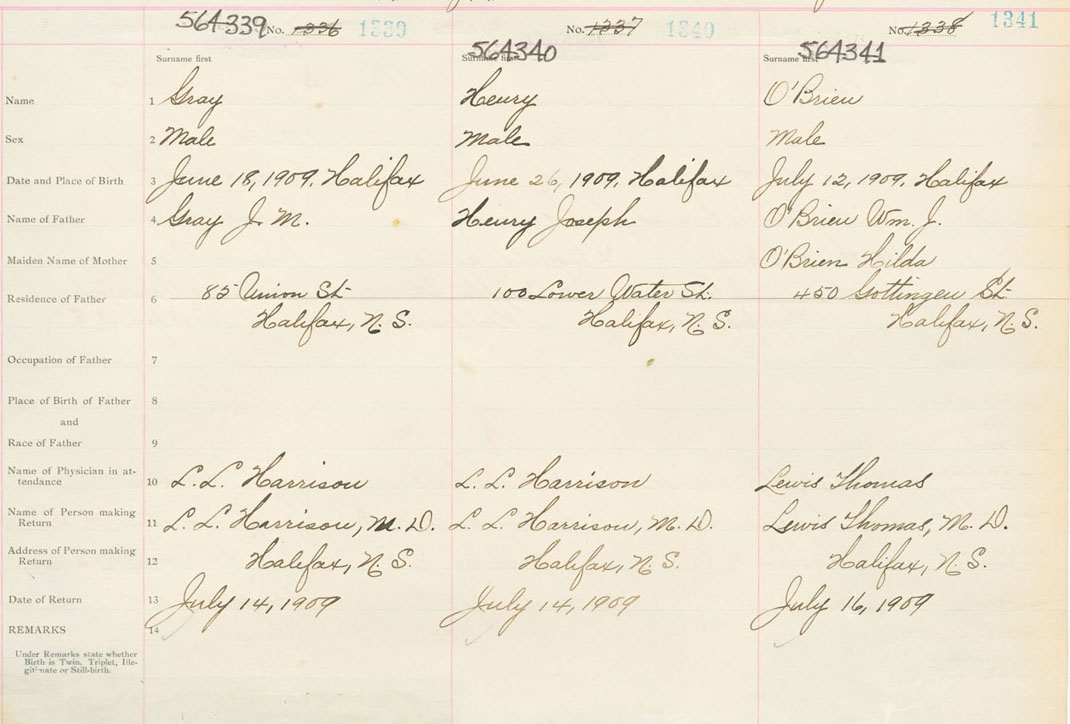 564339 No. 1336 1339 No. 1337 1340 No. 1338 1341
564340 564341
Surname first Surname first Surname first
Name 1 Gray Henry O'Brien
Sex 2 Male Male Male
Date and Place of Birth 3 June 18, 1909. Halifax June 26, 1909. Halifax July 12, 1909. Halifax
Name of Father 4 Gray J. M. Henry Joseph O'Brien Wm. J.
Maiden Name of Mother 5 O'Brien Hilda
Residence of Father 6 85 Union St. 100 Lower Water St. 450 Gottingen St.
Halifax, N. S. Halifax, N. S. Halifax, N. S.
Occupation of Father 7
Place of Birth of Father 8
and
Race of Father 9
Name of Physician in at-
tendance 10 L. L. Harrison L. L. Harrison Lewis Thomas
Name of Person making
Return 11 L. L. Harrison, M. D. L. L. Harrison, M. D. Lewis Thomas, M. D.
Address of Person making
Return 12 Halifax, N. S. Halifax, N. S. Halifax, N. S.
Date of Return 13 July 14, 1909 July 14, 1909 July 16, 1909
REMARKS 14
Under Remarks state whether
Birth is Twin, Triplet, Ille-
gitimate or Still-birth.